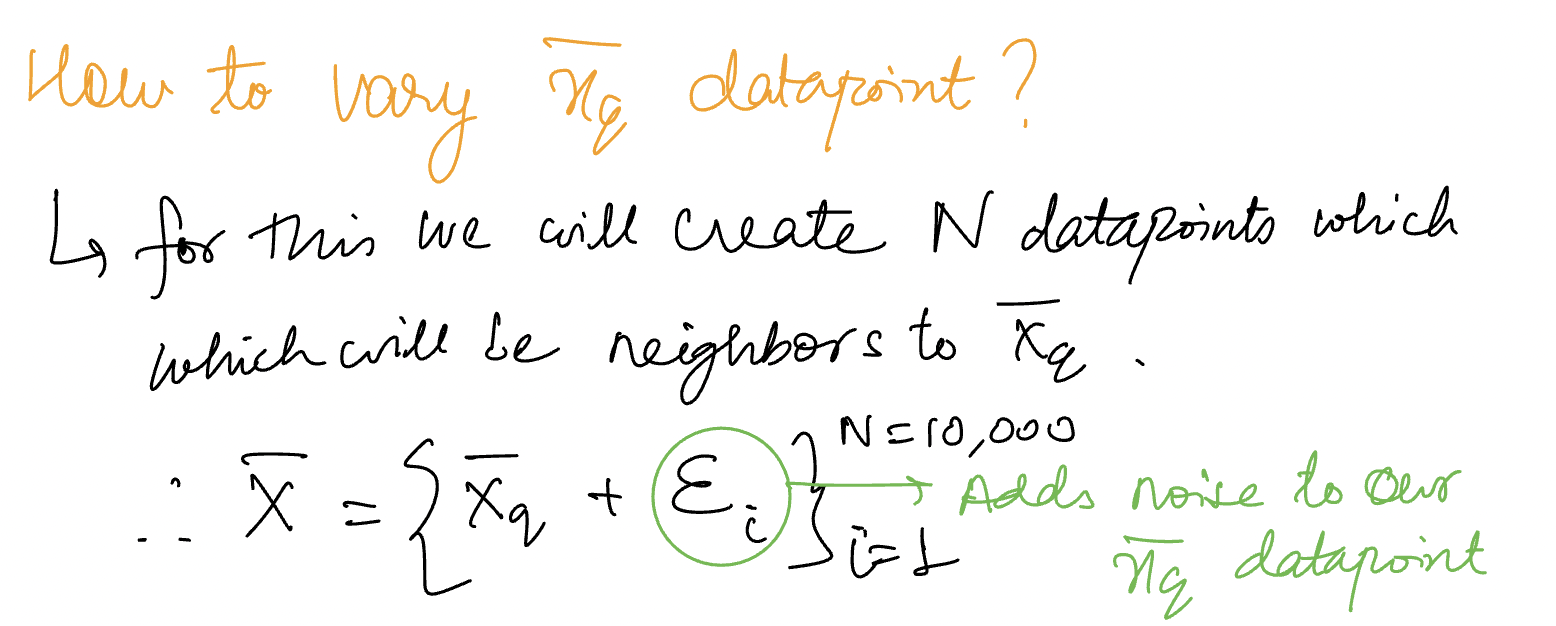 How to vary x̄q datapoint?
↳ for this we will create N datapoints which
which will be neighbors to x̄q .
N=10,000
∴ X̄ = { x̄q + εi } → Adds noise to our
i=1 x̄q datapoint